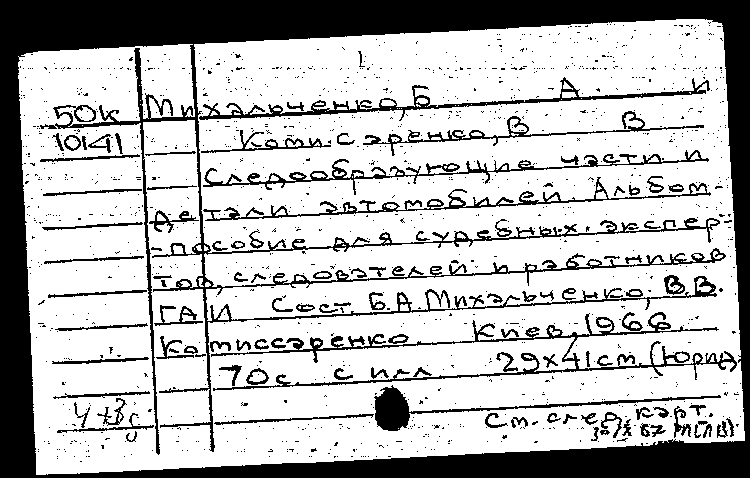 50к Михальченко, Б А и
10141 Комиссаренко, В В
Следообразующие части и
детали автомобилей. Альбом-
-пособие для судебных экспер-
тов, следователей и работников
ГАИ Сост. Б.А. Михальченко, В.В.
Комиссаренко. Киев, 1966.
70с. с илл 29х41 см. (Юрид
См. след. карт.